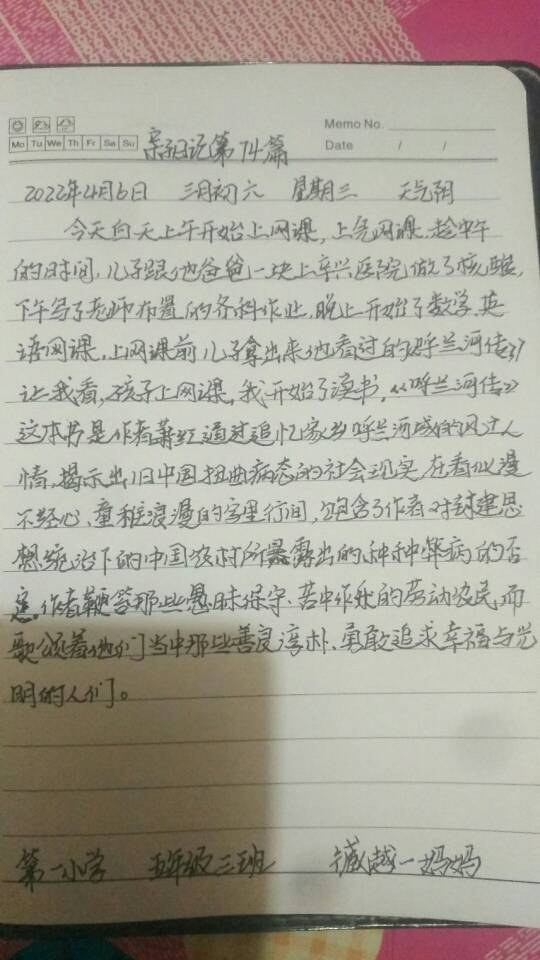 Memo No.
Mo Tu We Th Fr Sa Su
Date / /
亲子日记第74篇
2022年4月6日 三月初六 星期三 天气阴
今天白天上午开始上网课,上完网课.趁中午
的时间,儿子跟他爸爸一块上阜兴医院做了核酸,
下午写了老师布置的各科作业.晚上开始了数学.英
语网课,上网课前儿子拿出来他看过的《呼兰河传》
让我看,孩子上网课,我开始了读书,《呼兰河传》
这本书是作者萧红通过追忆家乡呼兰河城的风土人
情,揭示出旧中国扭曲病态的社会现实,在看似漫
不经心、童稚浪漫的字里行间,饱含了作者对封建思
想统治下的中国农村所暴露出的种种弊病的否
定.作者鞭笞那些愚昧保守、苦中作乐的劳动农民,而
歌颂着他们当中那些善良淳朴、勇敢追求幸福与光
明的人们。
第一小学 五年级三班 臧越一妈妈